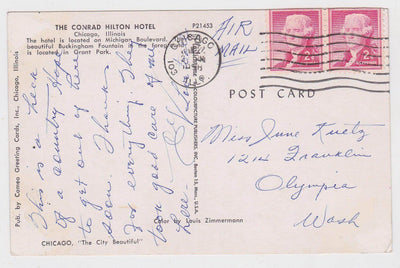 THE CONRAD HILTON HOTEL
P21453
Chicago, Illinois
The hotel is located on Michigan Boulevard.
beautiful Buckingham Fountain in the
is located in Grant Park.
AIR
MAIL
CHICAGO
ILL.
2¢
2¢
Pub. by Cameo Greeting Cards, Inc. Chicago, Illinois
This is a heck
of a country. Hope
to get out of here
soon. Thanks
for everything. They
took good care of me
here.
Color by Louis Zimmermann
CHICAGO, "The City Beautiful"
POST CARD
Miss June
1214 Franklin
Olympia
Wash